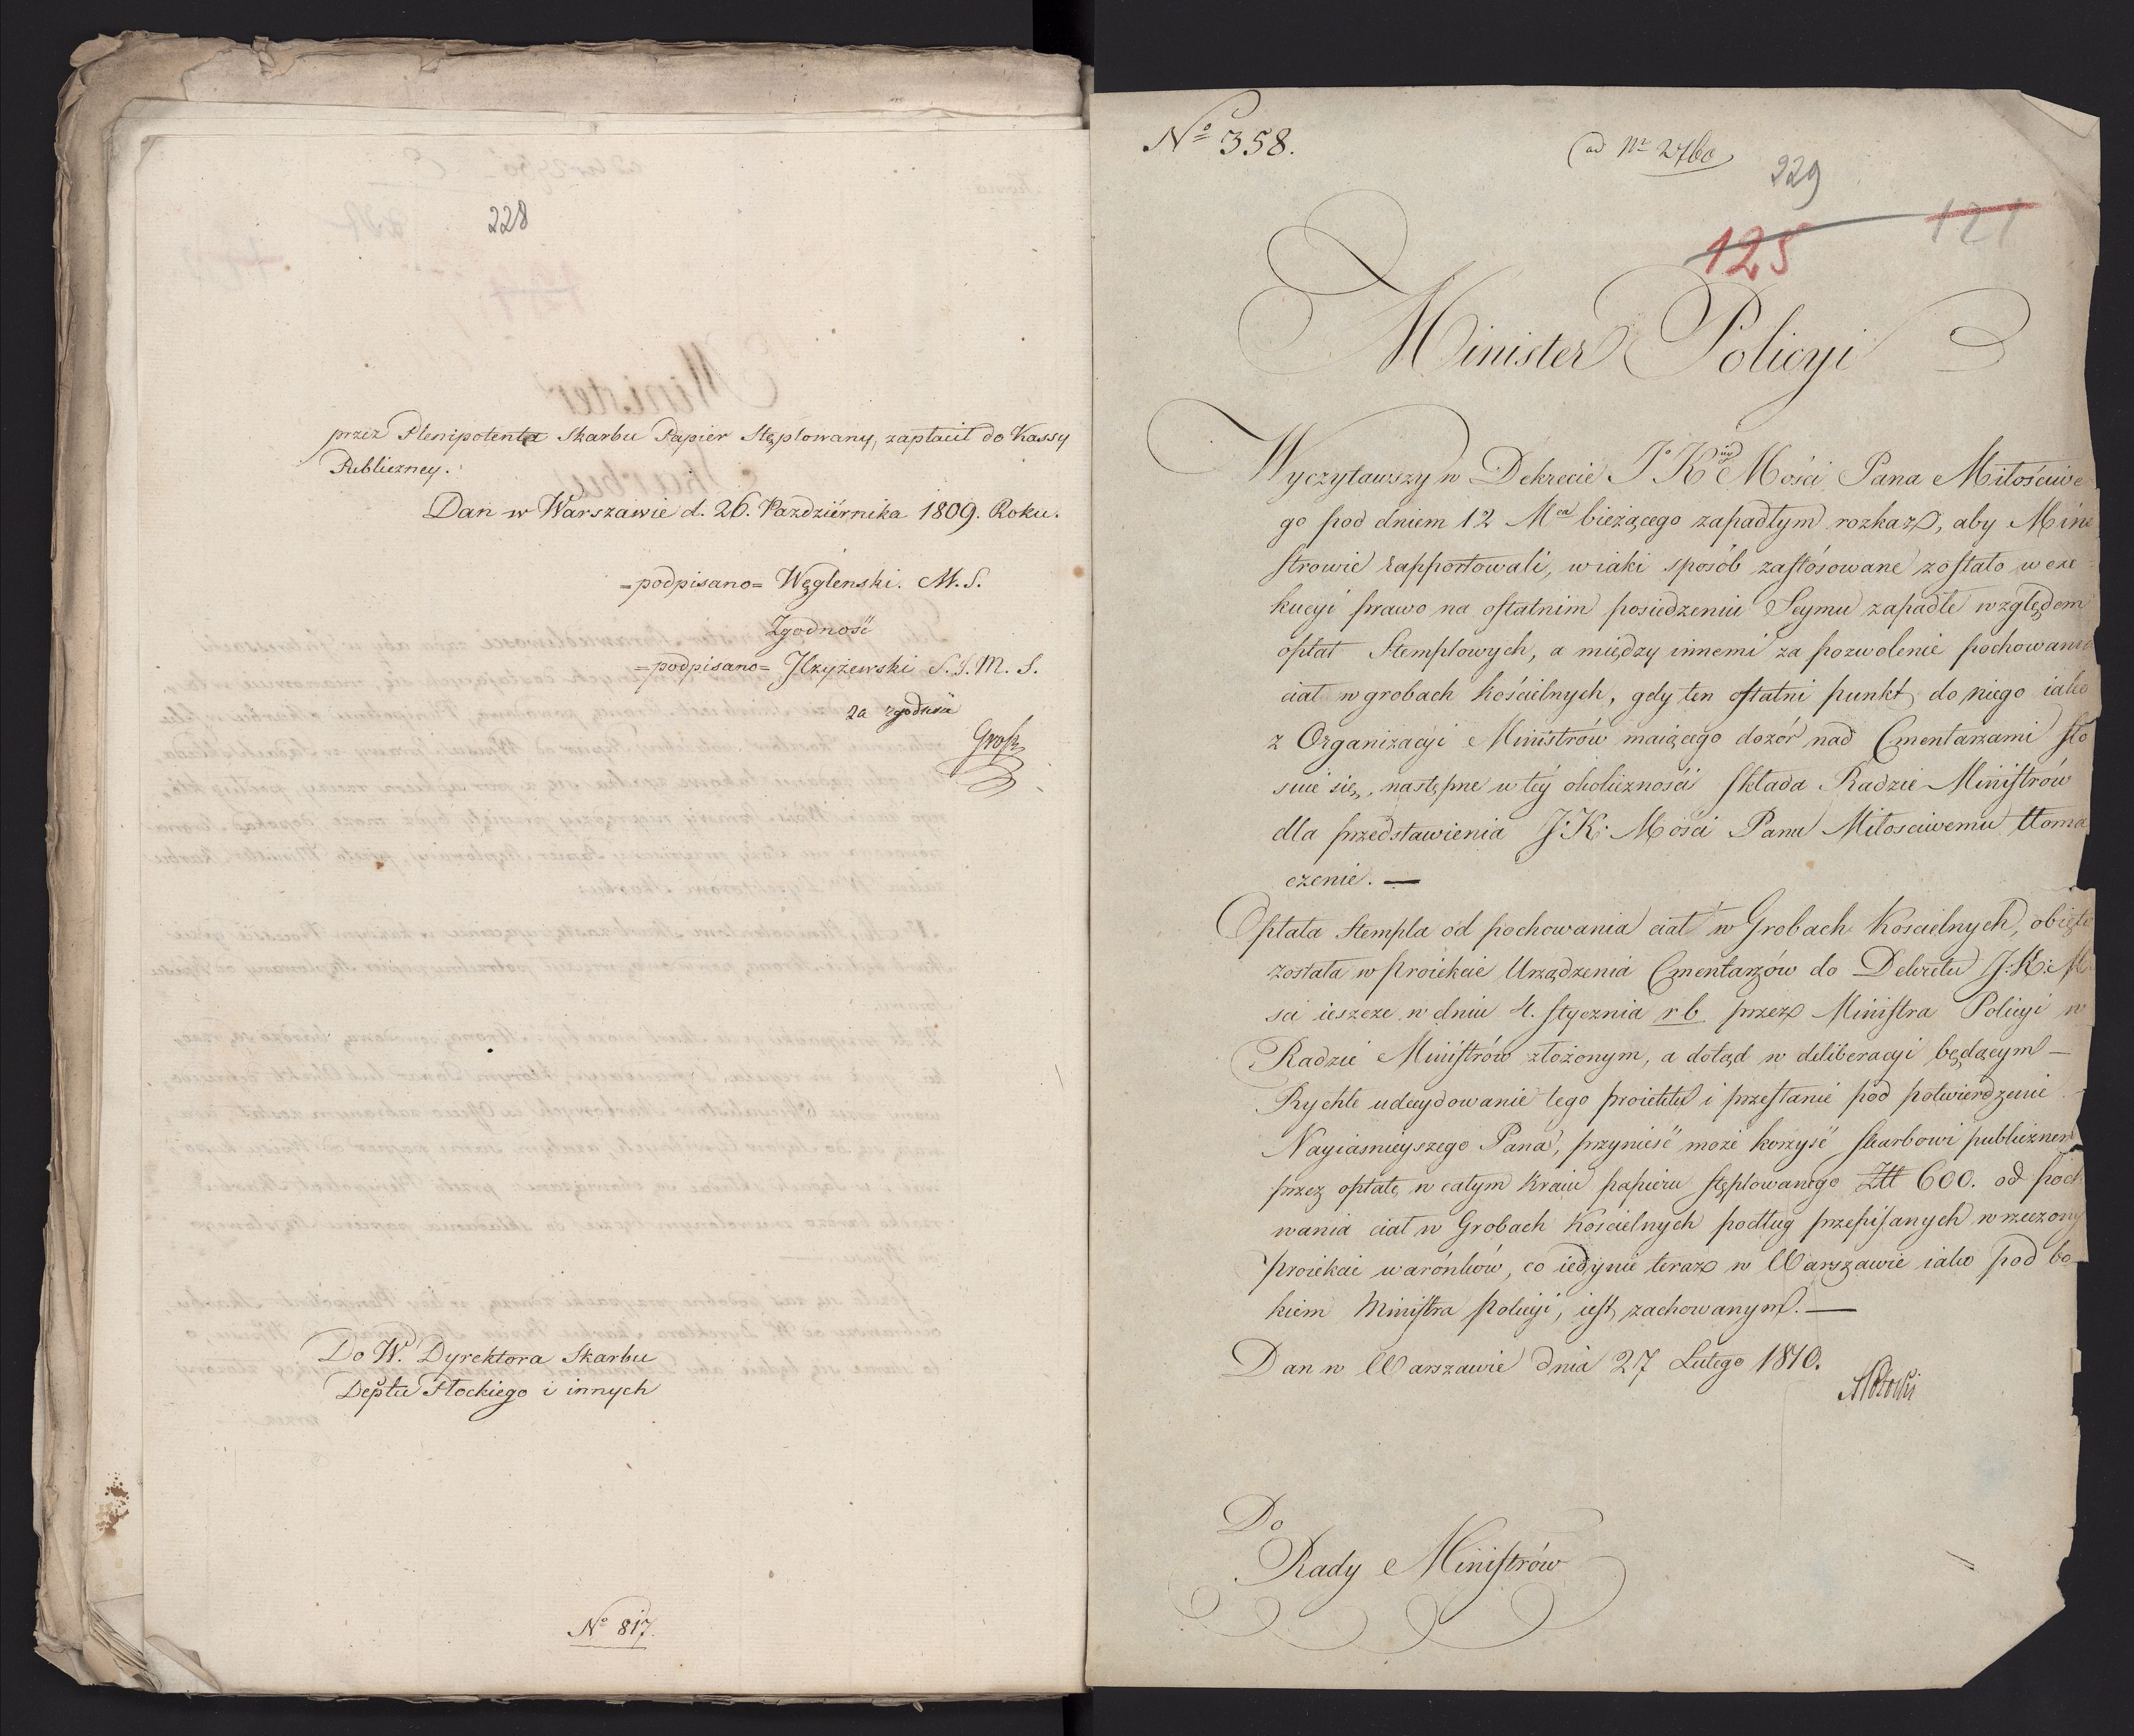 228
przez Plenipotenta Skarbu Papier Stęplowany, zapłacił do Kassy
Publiczney.
Dan w Warszawie d. 26. Pazdziérnika 1809. Roku.
=podpisano= Węglenski. M. S.
Zgodność
=podpisano= Ilżyżewski S. J. M. S.
za zgodność
Groß
Do W. Dyrektora Skarbu
Deptu Płockiego i innych
No 817.
No 358.
ad Nr 2760
229
125
121
Minister Policyi
Wyczytawszy w Dekrecie J. K. Mości Pana Miłościwe
go pod dniem 12 Mca bieżącego zapadłym rozkaz, aby Mini
strowie rapportowali, w iaki sposób zastósowane zostało w exe
kucyi prawo na ostatnim posiedzeniu Seymu zapadłe względem
opłat Stemplowych, a między innemi za pozwolenie pochowania
ciał w grobach kościelnych, gdy ten ostatni punkt do niego iako
z Organizacyi Ministrów maiącego dozór nad Cmentarzami sto
suie się, następne w téy okoliczności składa Radzie Ministrów
dla przedstawienia J: K: Mości Panu Miłosciwemu tłoma
czenie. —
Opłata Stempla od pochowania ciał w Grobach Koscielnych, obięta
została w proiekcie Urządzenia Cmentarzów do Dekretu J: K: Mo
sci ieszcze w dniu 4. Stycznia r b przez Ministra Policyi w
Radzie Ministrów złożonym, a dotąd w deliberacyi będącym —
Rychłe udecydowanie tego proiektu i przesłanie pod potwierdzenie
Nayiasnieyszego Pana, przynieść może korzyść skarbowi publicznemu
przez opłatę w całym Kraiu papieru stęplowanego Złł 600. od pocho
wania ciał w Grobach Koscielnych podług przepisanych w rzeczonym
proiekcie warónków, co iedynie teraz w Warszawie iako pod bo
kiem Ministra Policyi, iest zachowanym. —
Dan w Warszawie dnia 27 Lutego 1810.
APotocki
Do
Rady Ministrów